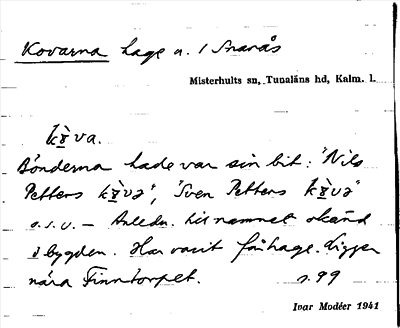 Kovarna hage u. / Snarås
Misterhults sn, Tunaläns hd, Kalm. l.
kò̤va.
Bönderna hade var sin bit: "Nils
Petters kò̤və", "Sven Petters kò̤və"
o.s.v. – Anledn. till namnet okänd
i bygden. Har varit fårhage. Ligger
nära Finntorpet. s. 99
Ivar Modéer 1941